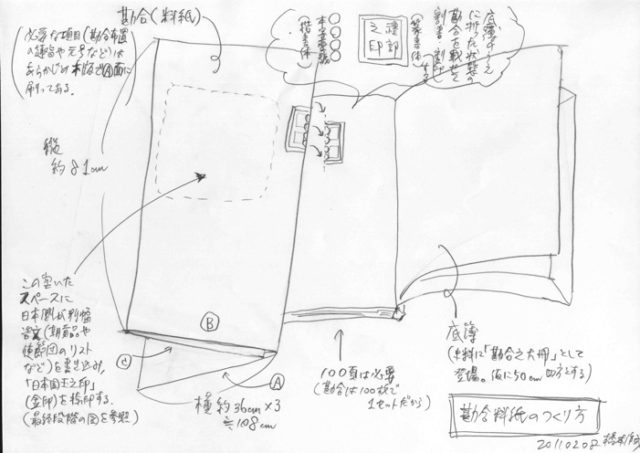 勘合(料紙)
必要な項目(勘合布置
の諸旨や元号など)は
あらかじめ本版でⒶ面に
刷ってある。
縦
約81cm
この空いた
スペースに
日本側が判幅
(朝貢品や
使節団のリスト
など)を書き込み、
「日本国王之印」
(金印)を捺印する。
(最終段階の図を参照)
Ⓑ
Ⓒ
Ⓐ
横約36cm×3
≒108cm
本字壹號
楷書体
禮部
之印
篆書体
底簿のうえ
に折った状態の
勘合を載せ
割書・割印
する
100頁は必要
(勘合は100枚で
1セットだから)
底簿
(史料に「勘合之大冊」として
登場。仮に50cm四方とする)
勘合料紙のつくり方
2011.02.08